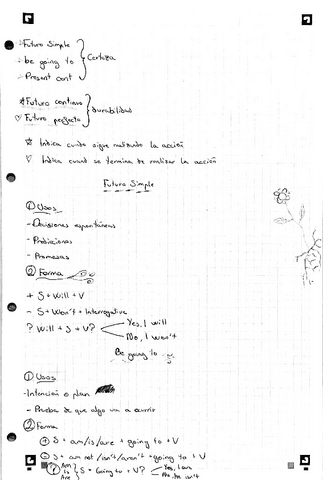 - Futuro Simple
- be going to } Certeza
- Present cont
☆ Futuro continuo } durabilidad
♡ Futuro perfecto
☆ Indica cuando sigue realizando la acción
♡ Indica cuand se termina de realizar la acción
Futuro Simple
① Usos
- Decisiones espontáneas
- Predicciones
- Promesas
② Forma
+ S + Will + V
- S + Won't + Interrogative
? Will + S + V? Yes, I will
No, I won't
Be going to
① Usos
- Intención o plan
- Prueba de que algo va a ocurrir
② Forma
+ S + am/is/are + going to + V
S + am not/isn't/aren't + going to + V
Am Is Are S + Going to + V? Yes, I am
No, isn't